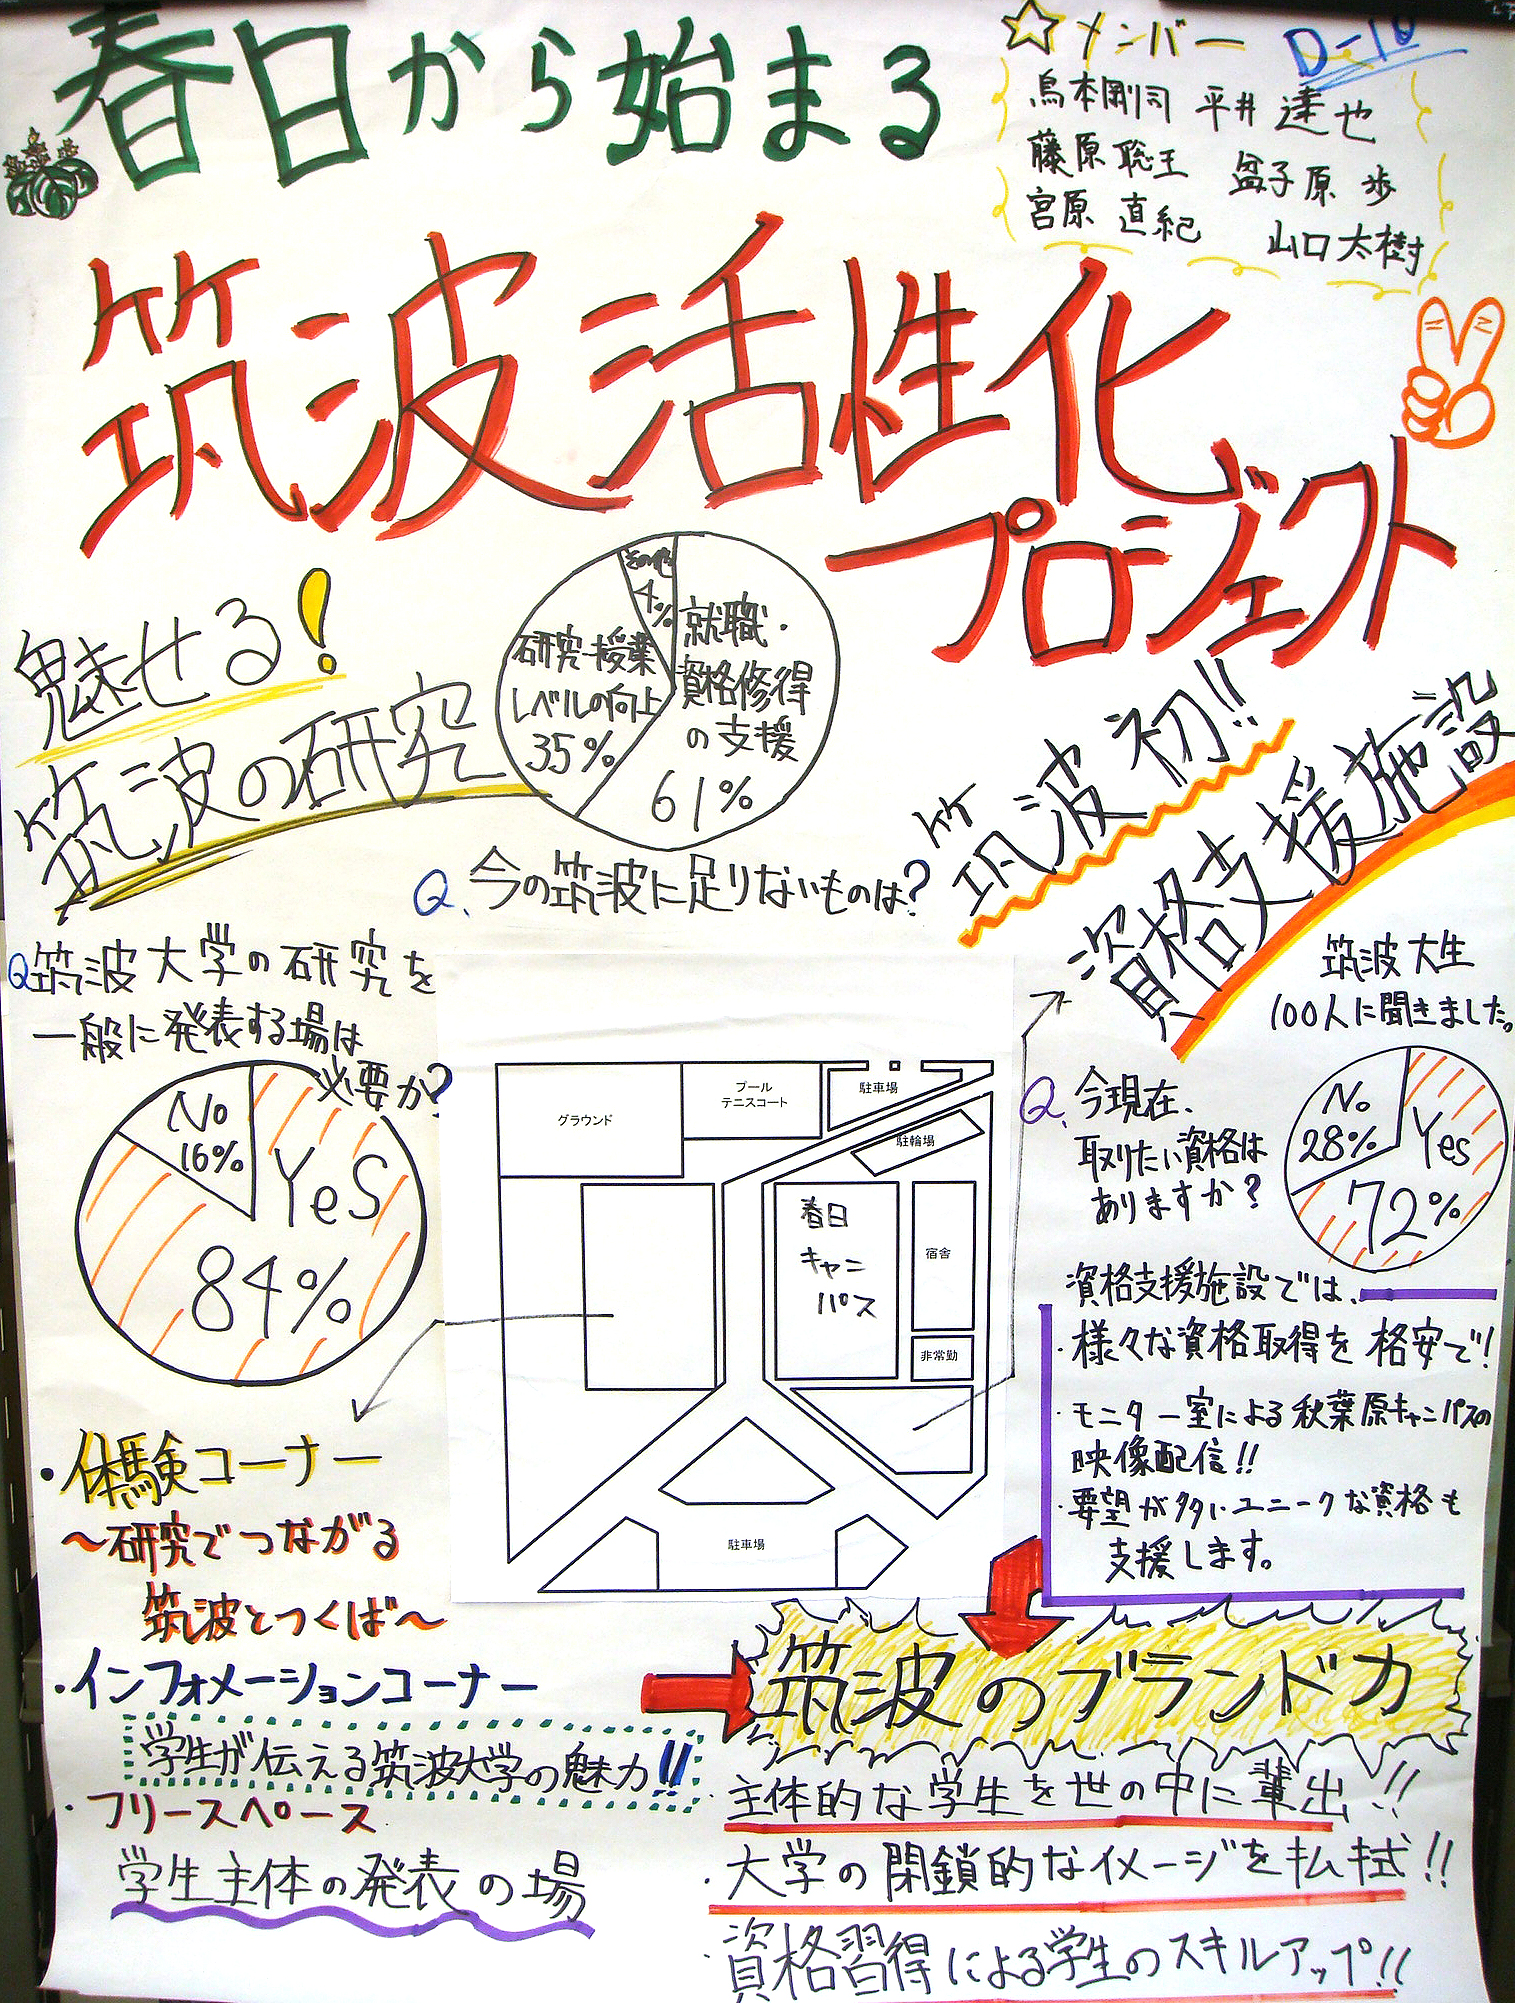 春日から始まる
☆メンバー
D-10
鳥本剛司 平井 達也
藤原 聡王 盆子原 歩
宮原 直紀 山口太樹
筑波活性化
プロジェクト
魅せる!
筑波の研究
その他
4%
研究・授業
レベルの向上
35%
就職・
資格修得
の支援
61%
Q.今の筑波に足りないものは?
筑波初!!
資格支援施設
Q筑波大学の研究を
一般に発表する場は
必要か?
No
16%
Yes
84%
筑波大生
100人に聞きました。
Q.今現在、
取りたい資格は
ありますか?
No
28%
Yes
72%
グラウンド
プール
テニスコート
駐車場
駐輪場
春日
キャン
パス
宿舎
非常勤
駐車場
資格支援施設では、
・様々な資格取得を格安で!
・モニター室による秋葉原キャンパスの
映像配信!!
・要望が多いユニークな資格も
支援します。
・体験コーナー
～研究でつながる
筑波とつくば～
・インフォメーションコーナー
学生が伝える筑波大学の魅力!!
・フリースペース
学生主体の発表の場
筑波のブランド力
・主体的な学生を世の中に輩出!!
・大学の閉鎖的なイメージを払拭!!
・資格習得による学生のスキルアップ!!